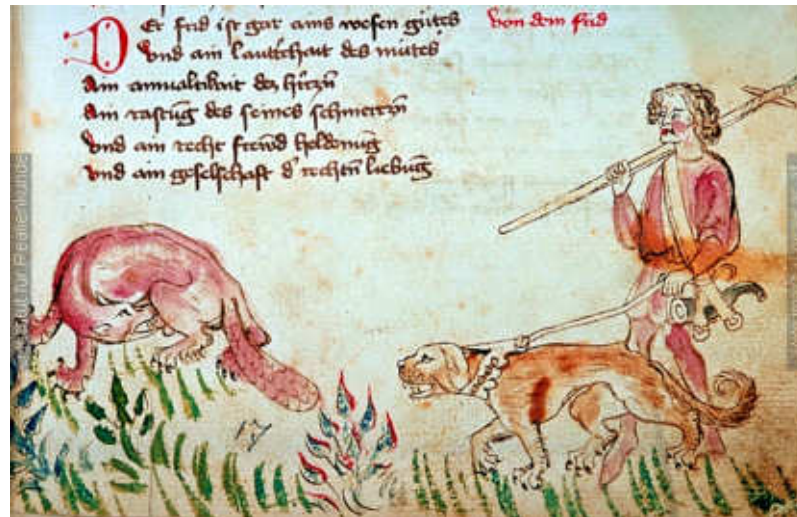 Der frid ist gar ains wesen gůtes
von dem frid
vnd ain lautrchait des můtes
Ain ainualtikait des hertzñ
Ain rastũg des seines schmertzñ
vnd ain recht frewnd
vnd ain geselschaft d' rechtñ liebũg
Institut für Realienkunde